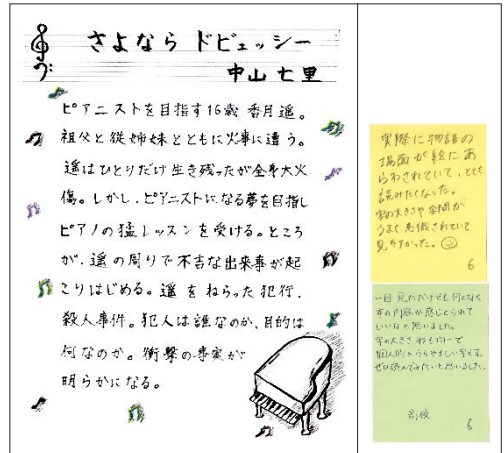 さよなら ドビュッシー
中山七里
ピアニストを目指す16歳 香月遥。
祖父と従姉妹とともに火事に遭う。
遥はひとりだけ生き残ったが全身大火
傷。しかし、ピアニストになる夢を目指し
ピアノの猛レッスンを受ける。ところ
が、遥の周りで不吉な出来事が起
こりはじめる。遥をねらった犯行、
殺人事件。犯人は誰なのか、目的は
何なのか。衝撃の事実が
明らかになる。
実際に物語の
場面が絵にあ
らわされていて、とても
読みたくなった。
の大きさや空間が
うまく意識されていて
見やすかった。
6
一目見ただけでも何となく
本の内容が感じとられて
いいなと思いました。
字の大きさ
ぜひ読んでみたいと思いました。
6